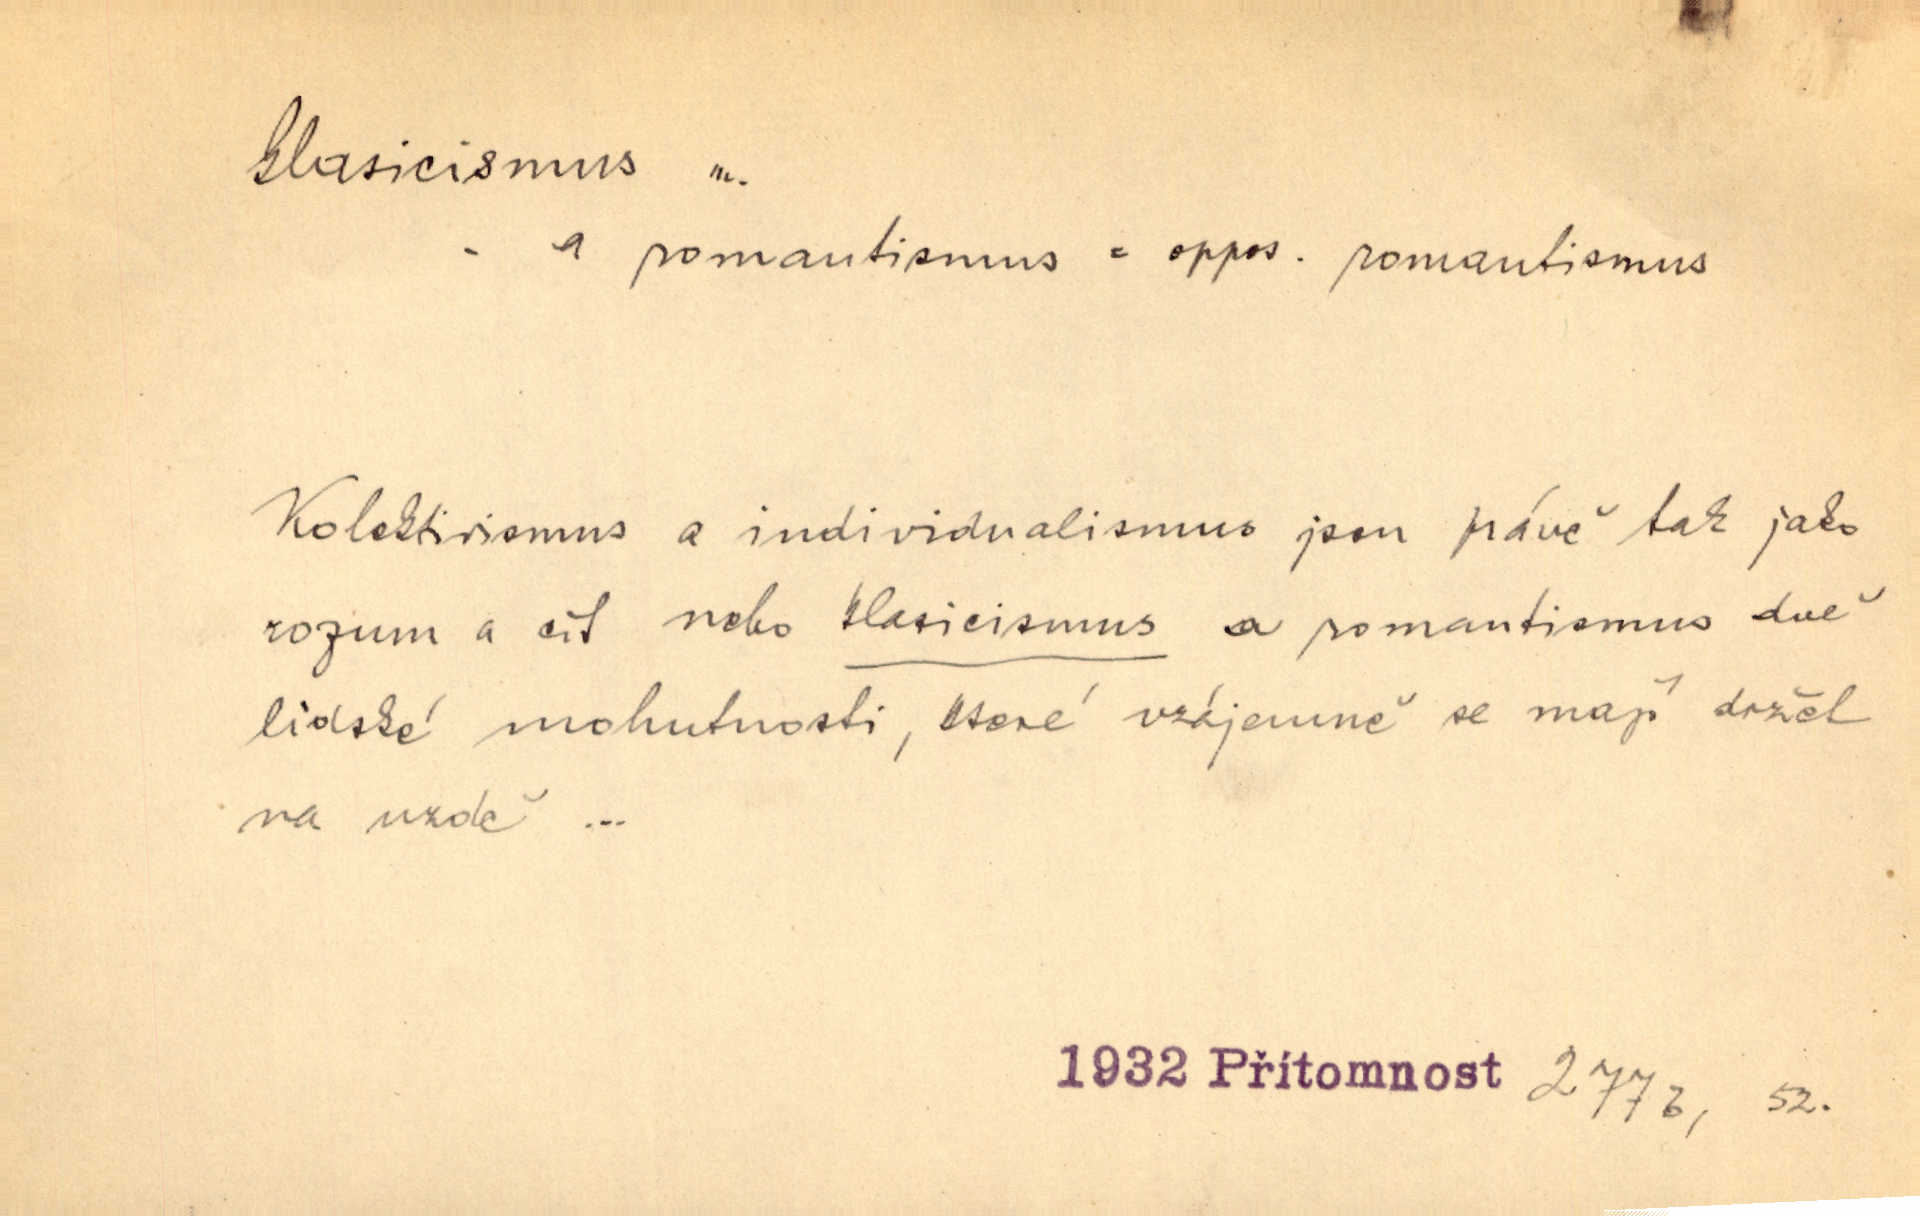 klasicismus m.
- a romantismus = oppos. romantismus
Kolektivismus a individualismus jsou právě tak jako
rozum a cit nebo klasicismus a romantismus dvě
lidské mohutnosti, které vzájemně se mají držet
na uzdě ...
1932 Přítomnost 277b, 52.